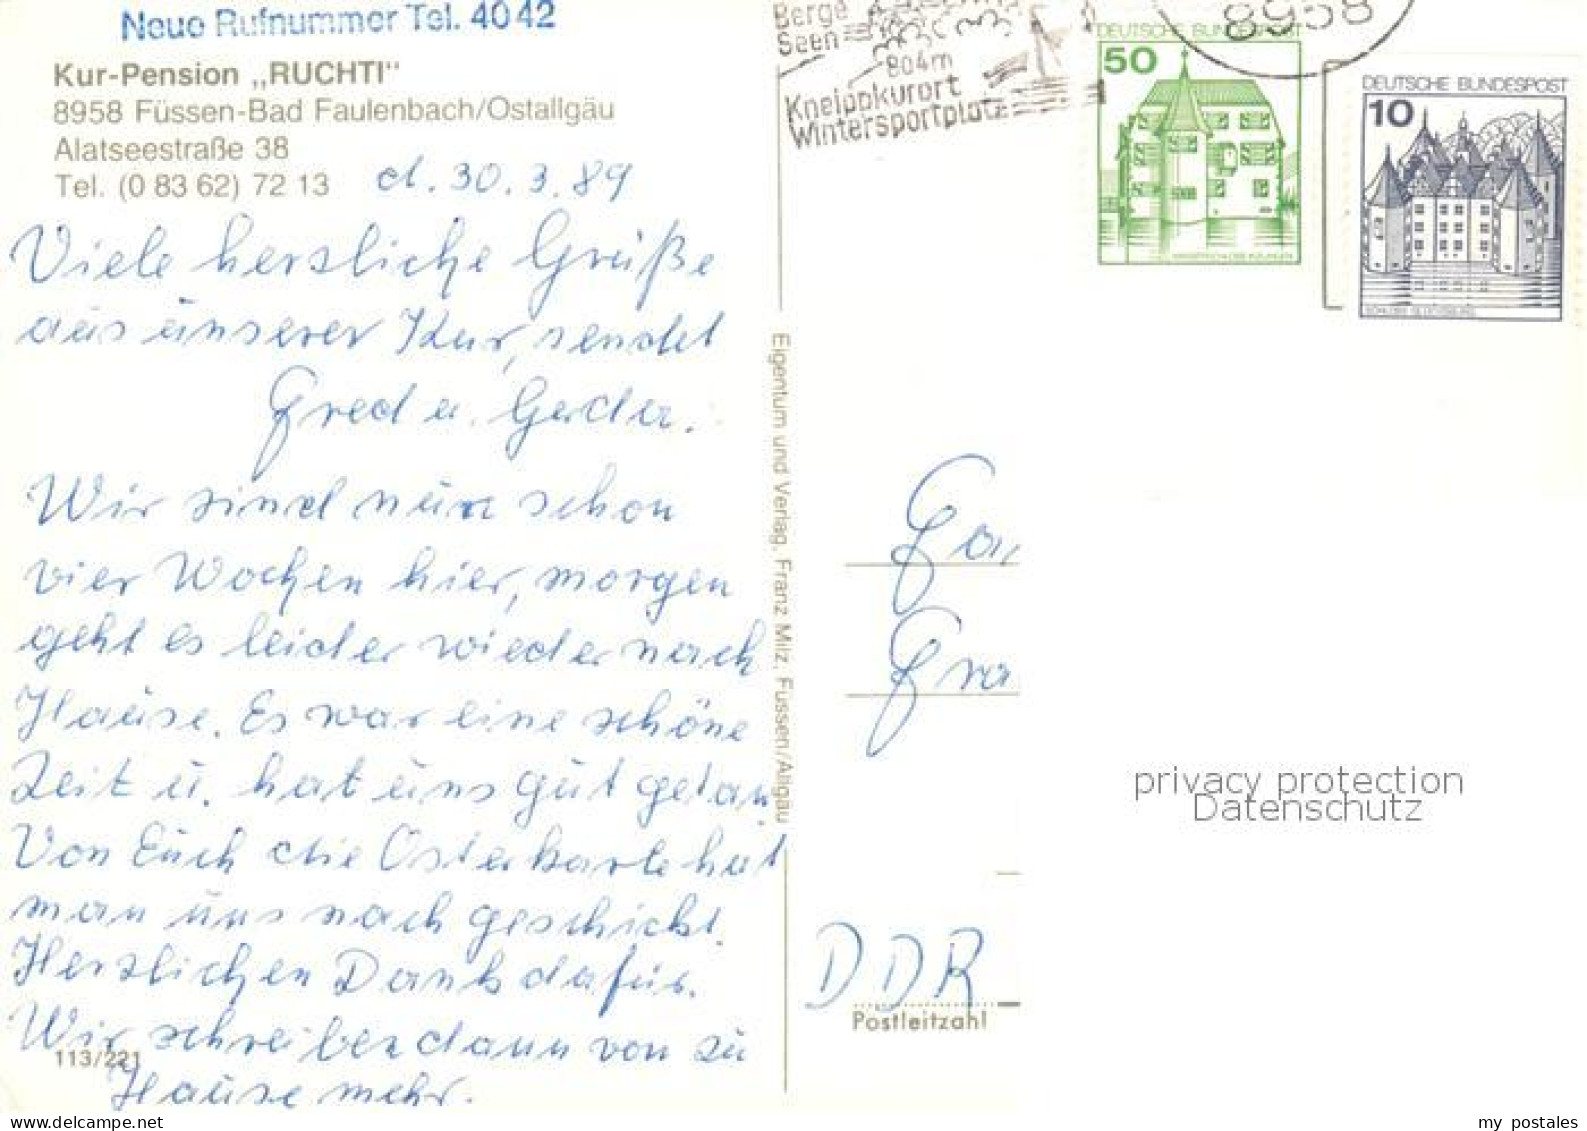 Neue Rufnummer Tel. 40 42
Kur-Pension „RUCHTI“
8958 Füssen-Bad Faulenbach/Ostallgäu
Alatseestraße 38
Tel. (0 83 62) 72 13
d. 30.3.89
Viele herzliche Grüße
aus unserer Kur, sendet
Fred u. Gerda.
Wir sind nun schon
vier Wochen hier, morgen
geht es leider wieder nach
Hause. Es war eine schöne
Zeit u. hat uns gut getan
Von Euch die Osterkarte hat
man uns nach geschickt.
Herzlichen Dank dafür.
Wir schreiben dann von zu
Hause mehr.
113/221
Eigentum und Verlag, Franz Milz, Füssen/Allgäu
Berge
Seen
804m
Kneippkurort
Wintersportplatz
8958
DEUTSCHE BUNDESPOST
50
WASSERSCHLOSS INZLINGEN
DEUTSCHE BUNDESPOST
10
SCHLOSS GLÜCKSBURG
Fra
DDR
Postleitzahl
privacy protection
Datenschutz
my postales